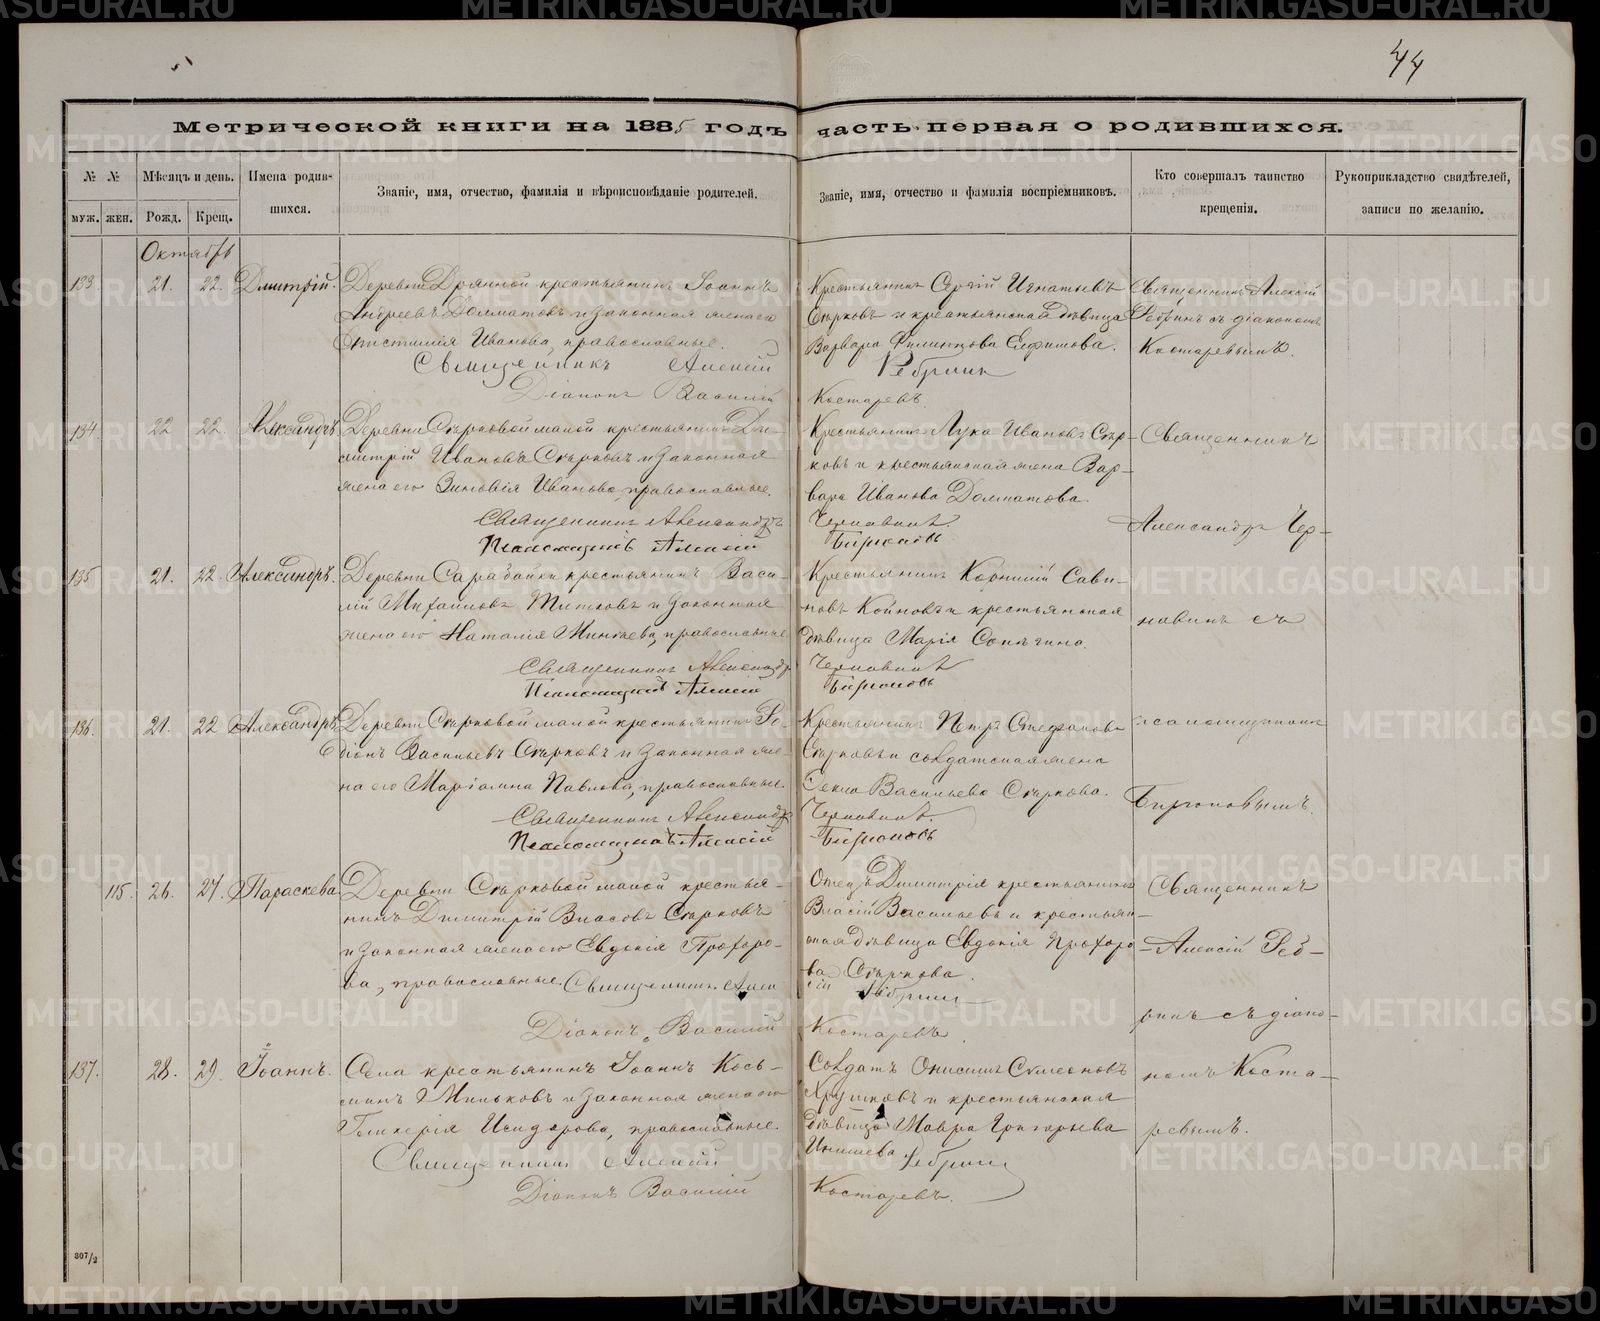 44
Метрической книги на 1885 годъ часть первая о родившихся.
№ №
муж. жен.
Мѣсяцъ и день.
Рожд. Крещ.
Имена родив-
шихся.
Званіе, имя, отчество, фамилія и вѣроисповѣданіе родителей.
Званіе, имя, отчество и фамилія воспріемниковъ.
Кто совершалъ таинство
крещенія.
Рукоприкладство свидѣтелей,
записи по желанію.
Октябрь
133. 21. 22. Дмитрій.
Деревни крестьянинъ Іоаннъ
Андреевъ Долматовъ и законная жена его
Иванова, православные.
Священникъ Алексій Ребринъ
Діаконъ Василій Костаревъ.
Крестьянинъ Сергій Игнатьевъ
Сѣрковъ и крестьянская дѣвица
Варвара Филиппова
Священникъ Алексій
Ребринъ съ діакономъ
Костаревымъ.
134. 22 22. Александръ.
Деревни Сѣрковой малой крестьянинъ Ди-
митрій Ивановъ Сѣрковъ и законная
жена его Зиновія Иванова, православные.
Священникъ Александръ
Псаломщикъ Алексій
Крестьянинъ Лука Ивановъ Сѣр-
ковъ и крестьянская жена Вар-
вара Иванова Долматова.
Священникъ
Александръ Чер-
135 21. 22. Александръ.
Деревни Сарабайки крестьянинъ Васи-
лій Михайловъ Титковъ и законная
жена его Наталія православные
Священникъ Александръ
Псаломщикъ Алексій
Крестьянинъ Корнилій Сави-
новъ и крестьянская
дѣвица Марія
новинъ съ
136. 21. 22 Александръ
Деревни Сѣрковой малой крестьянинъ Ро-
діонъ Васильевъ Сѣрковъ и законная же-
на его Маріамна Павлова, православные.
Священникъ Александръ
Псаломщикъ Алексій
Крестьянинъ Петръ Стефановъ
Сѣрковъ и солдатская жена
Текла Васильева Сѣркова.
псаломщикомъ
115. 26. 27. Параскева.
Деревни Сѣрковой малой крестья-
нинъ Димитрій Власовъ Сѣрковъ
и законная жена его Евдокія Прохоро-
ва, православные. Священникъ Алек
сій Ребринъ
Діаконъ Василій Костаревъ
Отецъ Димитрія крестьянинъ
Власій Васильевъ и крестьян-
ская дѣвица Евдокія Прохоро
ва Сѣркова.
Священникъ
Алексій Реб-
ринъ съ діако-
137. 28. 29. Іоаннъ.
Села крестьянинъ Іоаннъ Кось-
минъ Миньковъ и законная жена его
Гликерія Исидорова, православные.
Священникъ Алексій Ребринъ
Діаконъ Василій Костаревъ.
Солдатъ Онисимъ Симеоновъ
и крестьянская
дѣвица Мавра Григорьева
номъ Коста-
ревымъ.
307/2
METRIKI.GASO-URAL.RU